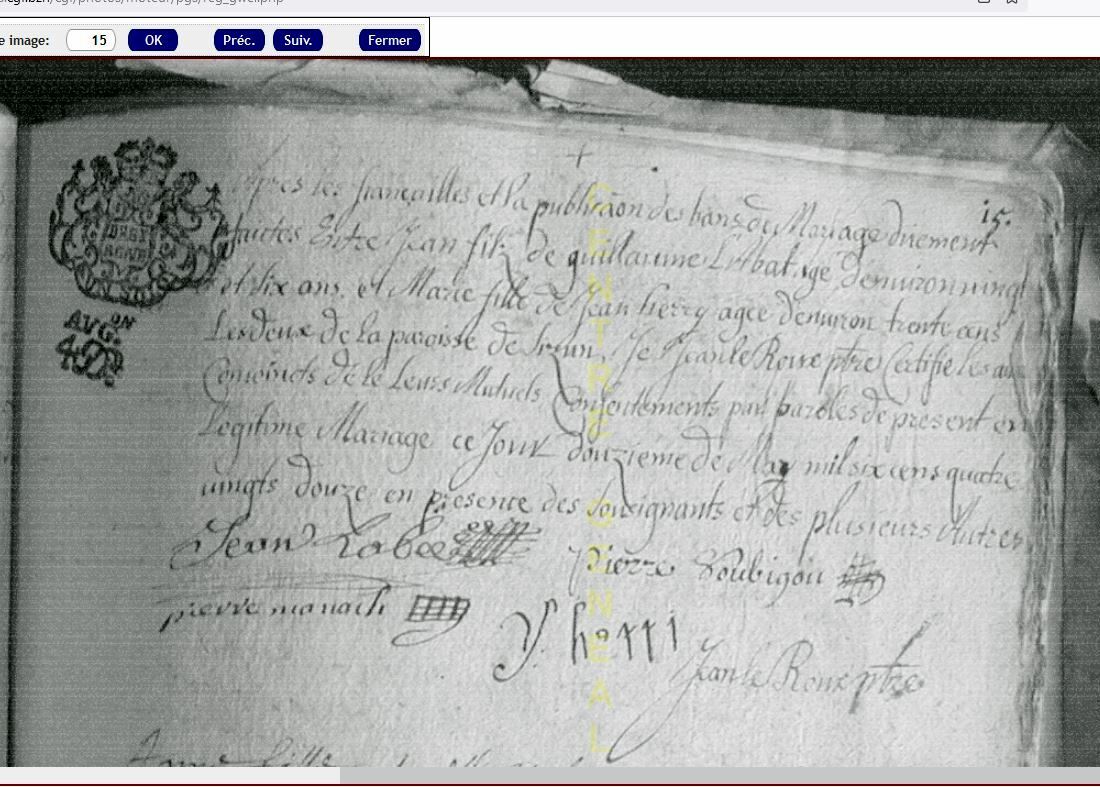 e image: 15 OK Préc. Suiv. Fermer
15.
apres les fiançailles et la publicãon des bans de Mariage duement
faites Entre Jean fils de guillaume L'Abat agé denviron vingt
et six ans et Marie fille de Jean herry agee denviron trente ans
Les deux de la paroisse de Je Jean le Roux ptre Certifie les avoir
Conioincts de Leurs Mutuels Consentements par paroles de present en
Legitime Mariage ce Jour douzieme de May mil six cens quatre
uingts douze en presence des sousignants et des plusieurs Autres
Jean Labae Pierre Soubigou
pierre manach
Y. herri
Jean le Roux ptre
CENTRE GENEAL